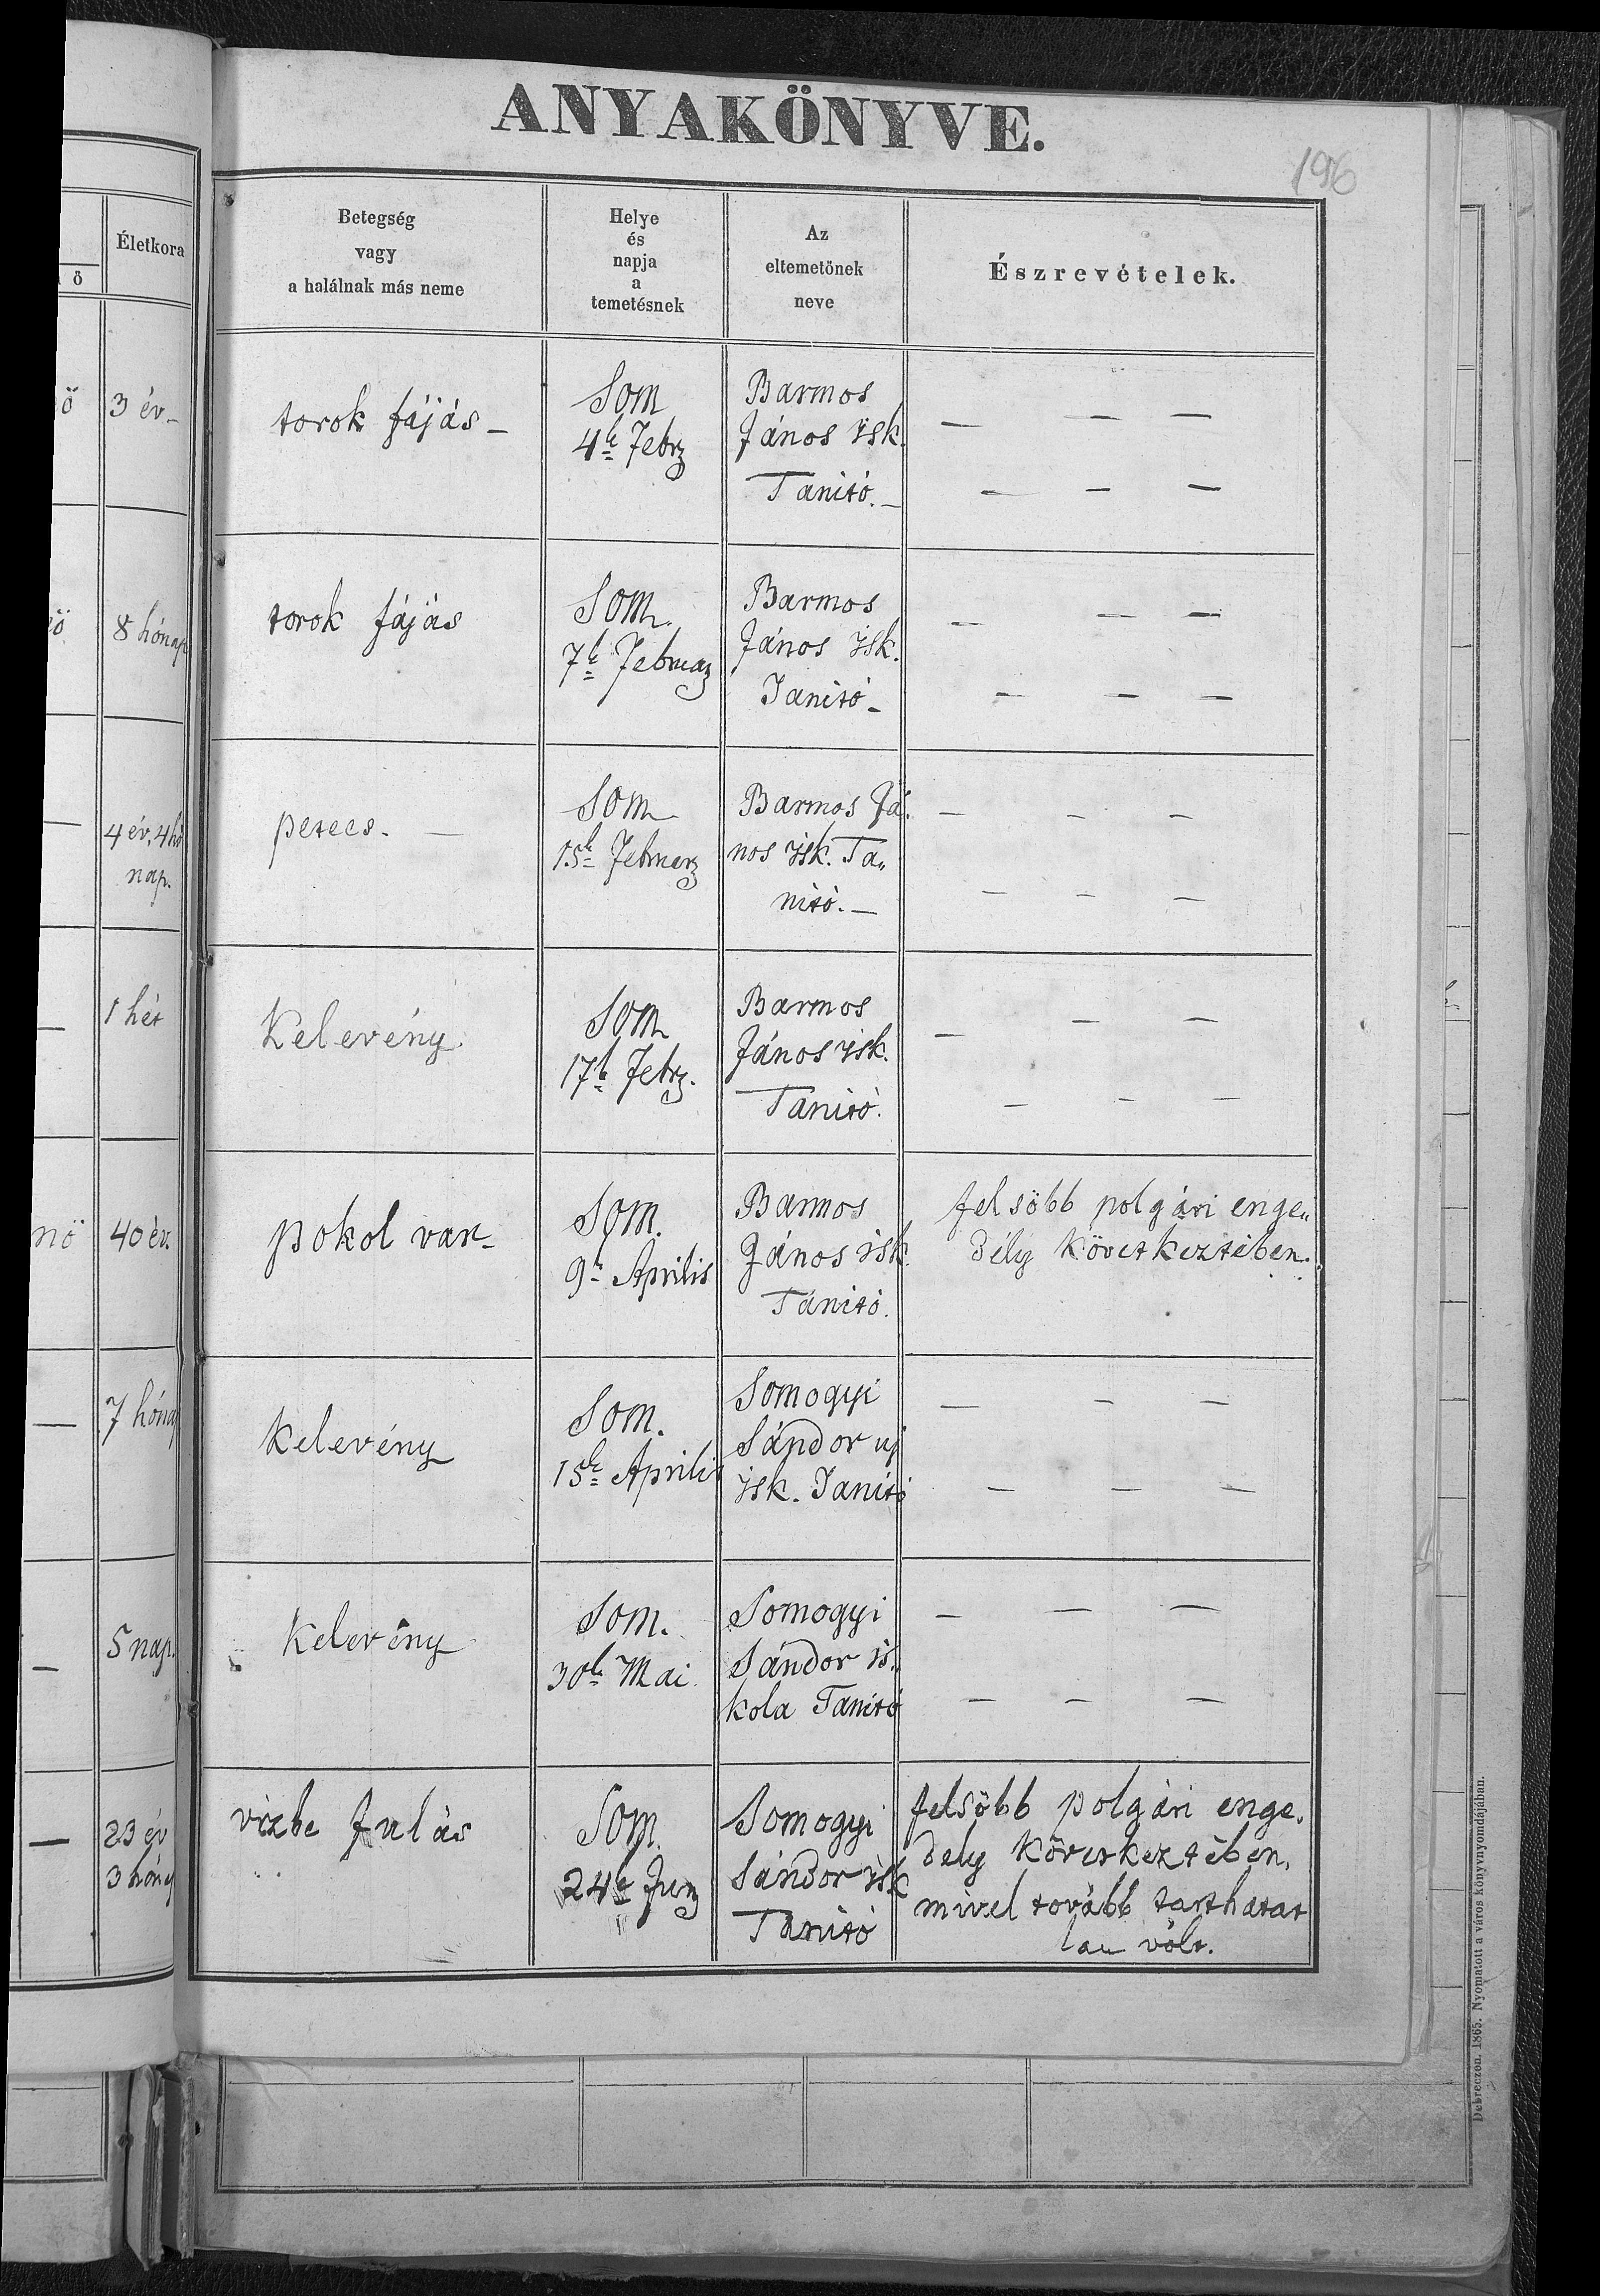 ANYAKÖNYVE.
196
Életkora
ő
Betegség
vagy
a halálnak más neme
Helye
és
napja
a
temetésnek
Az
eltemetőnek
neve
Észrevételek.
ö
3 év -
torok fájás -
Som
4k Febrz
Barmos
János isk.
Tanitó. -
— — —
— — —
8 hónap
torok fájás
Som.
7k Februaz
Barmos
János isk.
Tanitó -
— — —
— — —
—
4 év, 4 hó
nap.
petecs. —
Som
15k Februarz
Barmos Já-
nos isk. Ta„
nitó. —
— — —
— — —
—
1 hét
Kelevény.
Som
17k Febrz.
Barmos
János isk.
Tanitó.
— — —
— — —
nö
40 év.
pokol var-
Som.
9k Aprilis
Barmos
János isk.
Tanitó.
felsöbb polgári enge„
dély következtében.
—
7 hónap
Kelevény
Som.
15k Aprilis
Somogyi
Sándor uj
isk. Tanitó
— — —
— — —
—
5 nap.
Kelevény
Som.
30k Mai.
Somogyi
Sándor is„
kola Tanitó
— — —
— — —
—
23 év
3 hónap
vizbe fulás
Som.
24k Junz
Somogyi
Sándor isk
Tanitó
felsöbb polgári enge„
dély következtében,
mivel tovább tarthatat
lan volt.
Debreczen. 1865. Nyomatott a város könyvnyomdájában.